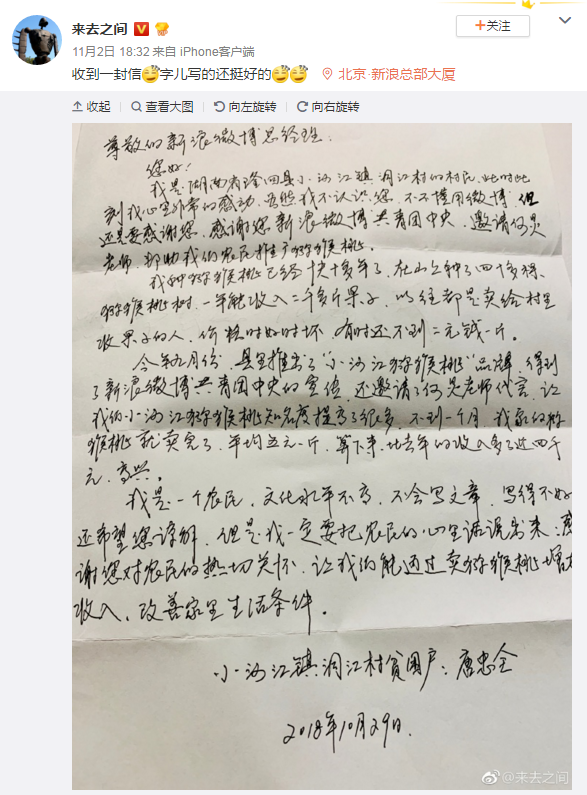 来去之间
+关注
11月2日 18:32 来自 iPhone客户端
收到一封信 字儿写的还挺好的 北京·新浪总部大厦
收起 查看大图 向左旋转 向右旋转
尊敬的新浪微博总经理.
您好!
我是湖南省隆回县小沙江镇洞江村的村民,此时此
刻我心里非常的感动,虽然我不认识您,不懂用微博 但
还是要感谢您,感谢您新浪微博共青团中央,邀请何炅
老师,帮助我们农民推广猕猴桃。
我种猕猴桃已经快十多年了,在山上种了四十多棵
猕猴桃树,一年能收入二千多斤果子,以往都是卖给村里
收果子的人,价钱时好时坏,有时还不到二元钱一斤。
今年九月份 县里推出了"小沙江猕猴桃"品牌,得到
了新浪微博共青团中央的宣传,还邀请了何炅老师代言,让
我们小沙江猕猴桃知名度提高了很多,不到一个月,我家的猕
猴桃就卖完了,平均五元一斤,算下来,比去年的收入多了近四千
元,高兴。
我是一个农民,文化水平不高,不会写文章,写得不好
还希望您谅解,但是我一定要把农民的心里话说出来:感
谢您对农民的热切关怀,让我们能通过卖猕猴桃增加
收入,改善家里生活条件。
小沙江镇洞江村贫困户:唐忠全
2018年10月29日.
@来去之间